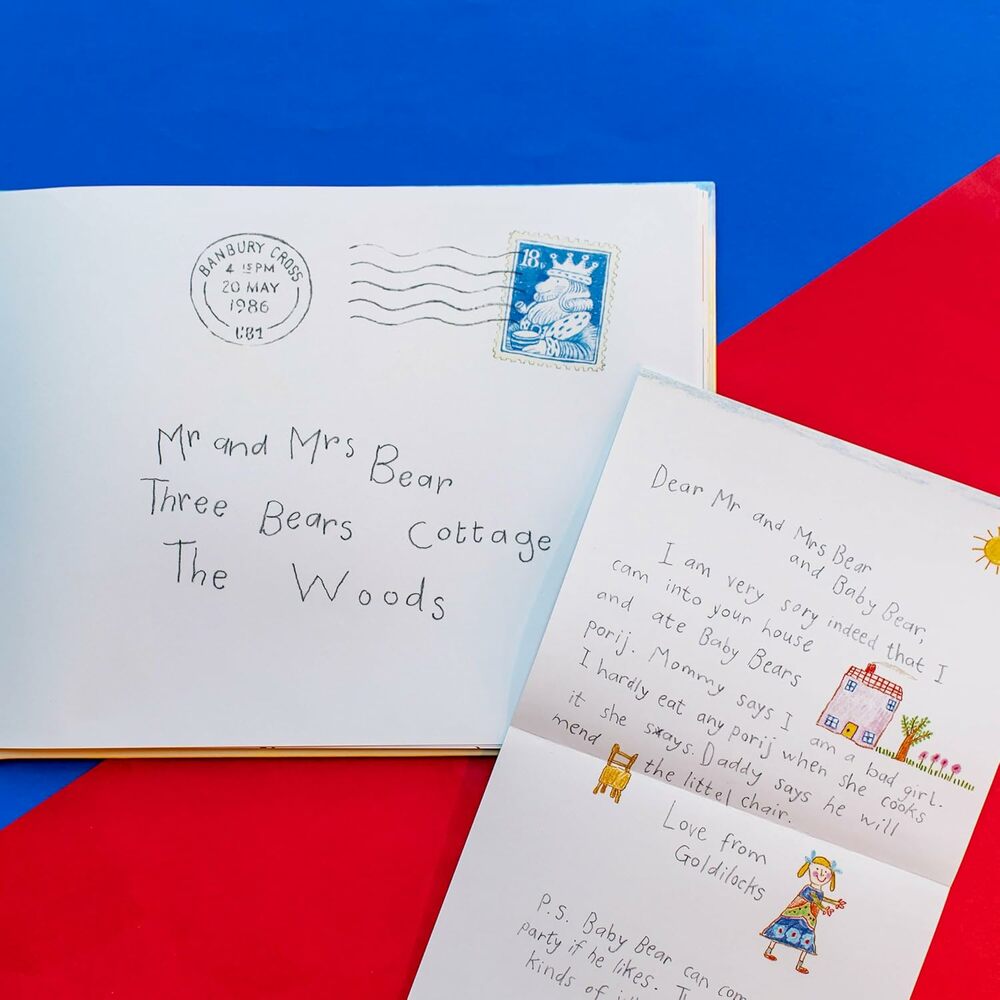 BANBURY CROSS
4 15 PM
20 MAY
1986
18p
Mr and Mrs Bear
Three Bears Cottage
The Woods
Dear Mr and Mrs Bear
and Baby Bear,
I am very sory indeed that I
cam into your house
and ate Baby Bears
porij. Mommy says I am a bad girl.
I hardly eat any porij when she cooks
it she says. Daddy says he will
mend the littel chair.
Love from
Goldilocks
P.s. Baby Bear can
party if he likes.
kinds of